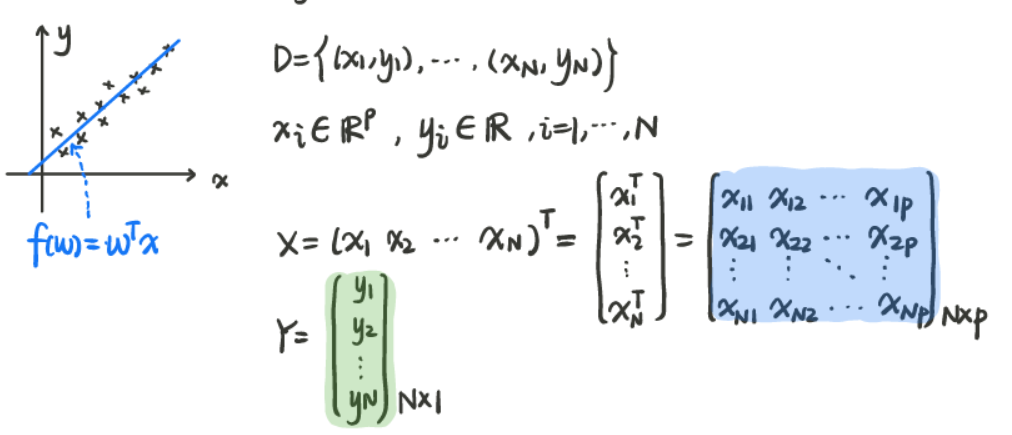 y
x
f(w)=w^T x
D={(x_1,y_1),⋯,(x_N,y_N)}
x_i∈ℝ^p , y_i∈ℝ ,i=1,⋯,N
X=(x_1 x_2 ⋯ x_N)^T=[x_1^T x_2^T ⋮ x_N^T]=[x_11 x_12 ⋯ x_1p
x_21 x_22 ⋯ x_2p
⋮ ⋮ ⋱ ⋮
x_N1 x_N2 ⋯ x_Np]_N×p
Y=(y_1
y_2
⋮
y_N)_N×1